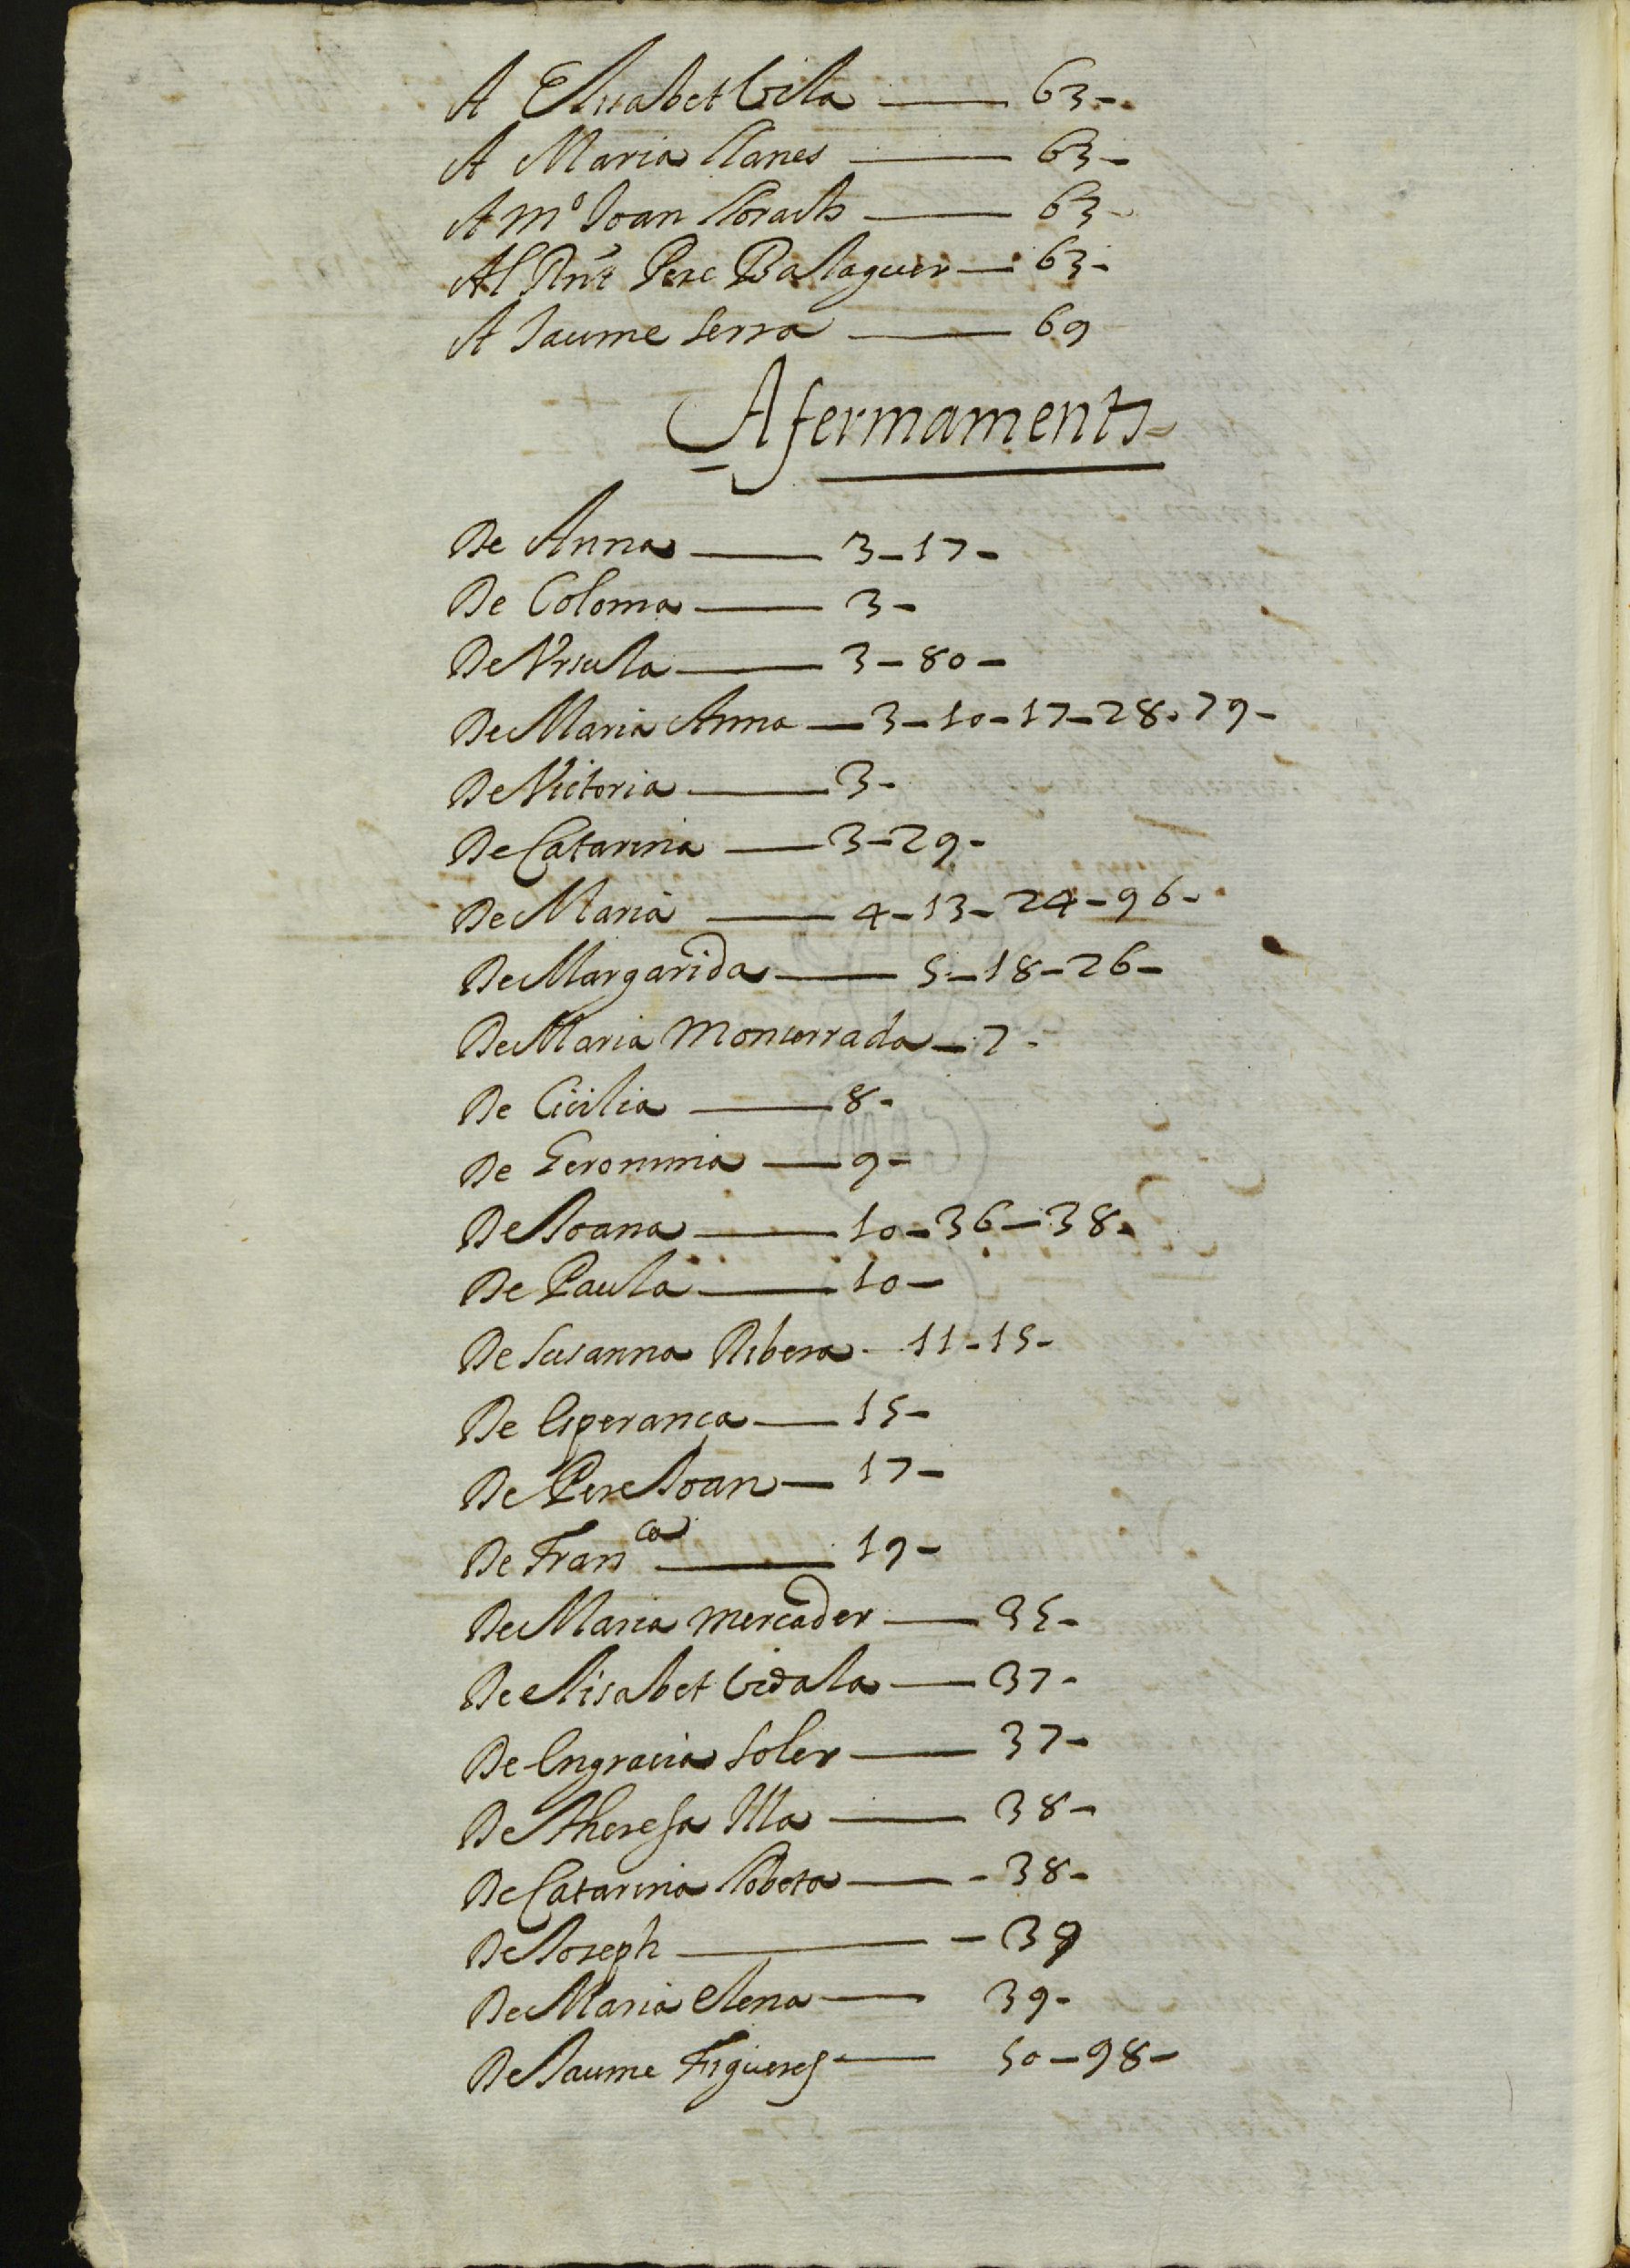 A Elisabet Vila —— 63-
A Maria Llanes —— 63-
A Mº Joan Llorach —— 63-
Al Rnt Pere Balaguer — 63-
A Jaume Serra —— 69
Afermaments
De Anna —— 3-17-
De Coloma —— 3-
De Vrsula —— 3-80-
De Maria Anna — 3-10-17-28-79-
De Victoria —— 3-
De Catarina —— 3-29-
De Maria —— 4-13-24-96-
De Margarida —— 5-18-26-
De Maria Monserrada — 7-
De Cicilia —— 8-
De Geronima —— 9-
De Joana —— 10-36-38-
De Paula —— 10-
De Susanna Ribera - 11-15-
De Esperança —— 15-
De Pere Joan — 17-
De Franca —— 19-
De Maria Mercader —— 35-
De Elisabet Vidala —— 37-
De Engracia Soler —— 37-
De Theresa Illa —— 38-
De Catarina Llobeta —— 38-
De Joseph —— 39
De Maria Elena —— 39-
De Jaume Figueres —— 50-98-